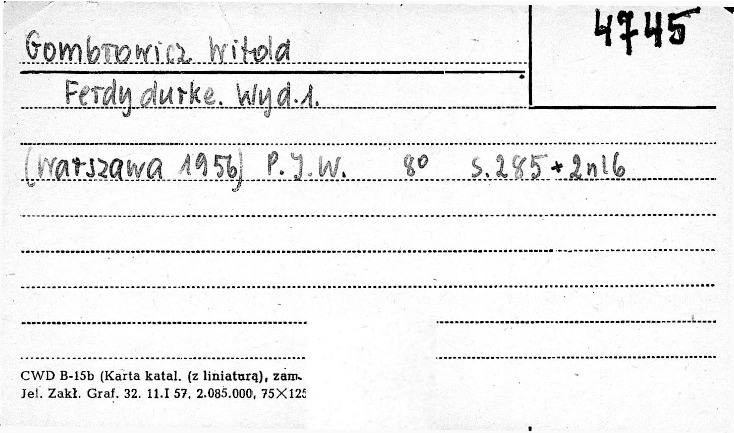 4745
Gombrowicz Witold
Ferdydurke. Wyd.1.
(Warszawa 1956) P.I.W. 8° s.285+2nl6
CWD B-15b (Karta katal. (z liniaturą), zam.
Jel. Zakł. Graf. 32. 11.I 57. 2.085.000, 75×125